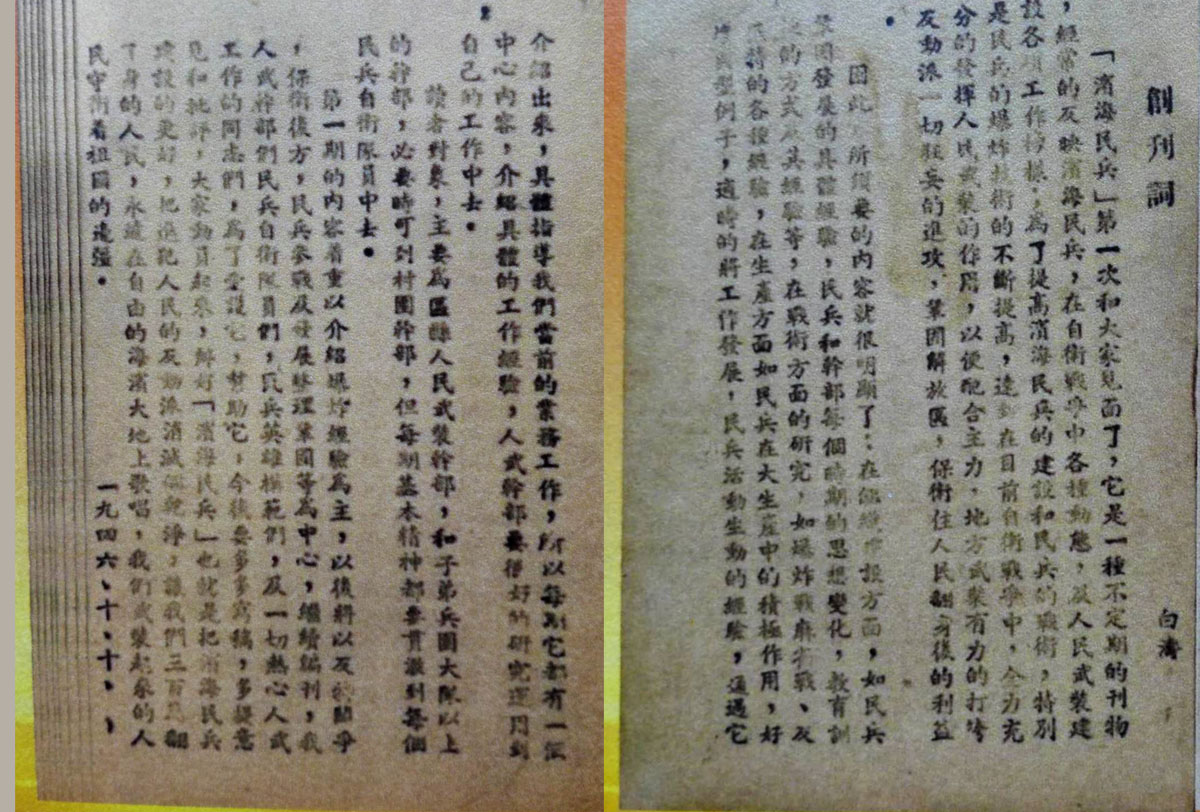 創刊詞
白濤
「濱海民兵」第一次和大家見面了，它是一種不定期的刊物
，經常的反映濱海民兵，在自衛戰爭中各種動態，及人民武裝建
設各項工作榜樣，為了提高濱海民兵的建設和民兵的戰術，特別
是民兵的爆炸技術的不斷提高，達到在目前自衛戰爭中，令力充
分的發揮人民武裝的作用，以便配合主力，地方武裝有力的打垮
反動派一切狂妄的進攻，鞏固解放區，保衛住人民翻身後的利益
。
因此，所須要的內容就很明顯了：在組織建設方面，如民兵
鞏固發展的具體經驗，民兵和幹部每個時期的思想變化，教育訓
的方式及其經驗等，在戰術方面的研究，如爆炸戰麻雀戰、反
持的各種經驗，在生產方面如民兵在大生產中的積極作用，好
典型例子，適時的將工作發展，民兵活動生動的經驗，通過它
介紹出來，具體指導我們當前的業務工作，所以每期它都有一個
中心內容，介紹具體的工作經驗，人武幹部要很好的研究運用到
自己的工作中去。
讀者對象，主要為區縣人民武裝幹部，和子弟兵團大隊以上
的幹部，必要時可到村團幹部，但每期基本精神都要貫澈到每個
民兵自衛隊員中去。
第一期的內容着重以介紹爆炸經驗為主，以後將以反的鬭爭
，保衛後方，民兵參戰及發展整理鞏固等為中心，繼續編刊，我
人武幹部們民兵自衛隊員們，民兵英雄模範們，及一切熱心人武
工作的同志們，為了愛護它，幫助它，今後要多多寫稿，多提意
見和批評，大家動員起來，辦好「濱海民兵」也就是把濱海民兵
建設的更好，把進犯人民的反動派消滅個乾淨，讓我們三百萬翻
了身的人民，永遠在自由的海濱大地上歌唱，我們武裝起來的人
民守衛着祖國的邊疆。
一九四六、十、十、